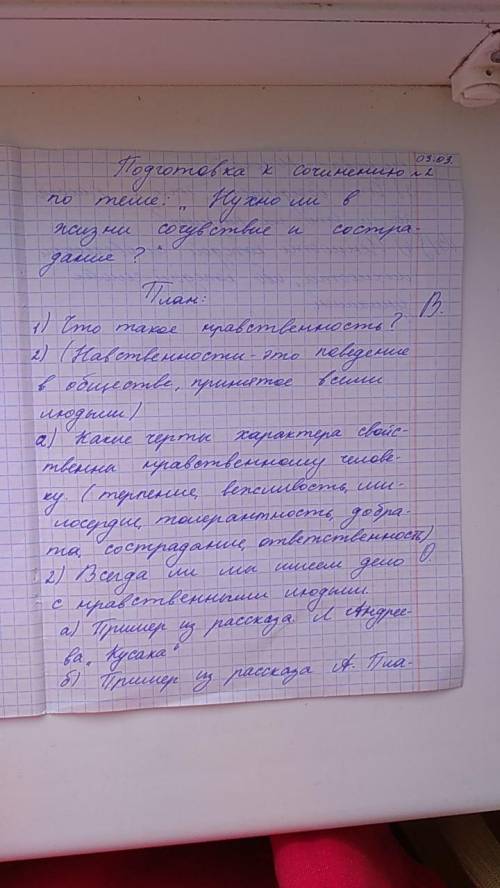 03.03.
Подготовка к сочинению №2
по теме: „Нужно ли в
жизни сочувствие и состра-
дание?“
План:
В.
1) Что такое нравственность?
2) (Навственности - это поведение
в обществе, принятое всеми
людьми)
2) Какие черты характера свойс-
твенны нравственному челове-
ку. (терпение, вежливость, ми-
лосердие, толерантность, добра-
та, сострадание, ответственность)
О.
2) Всегда ли мы имеем дело
с нравственными людьми.
а) Пример из рассказа Л Андрее-
ва „Кусака“
б) Пример из рассказа А. Пла-